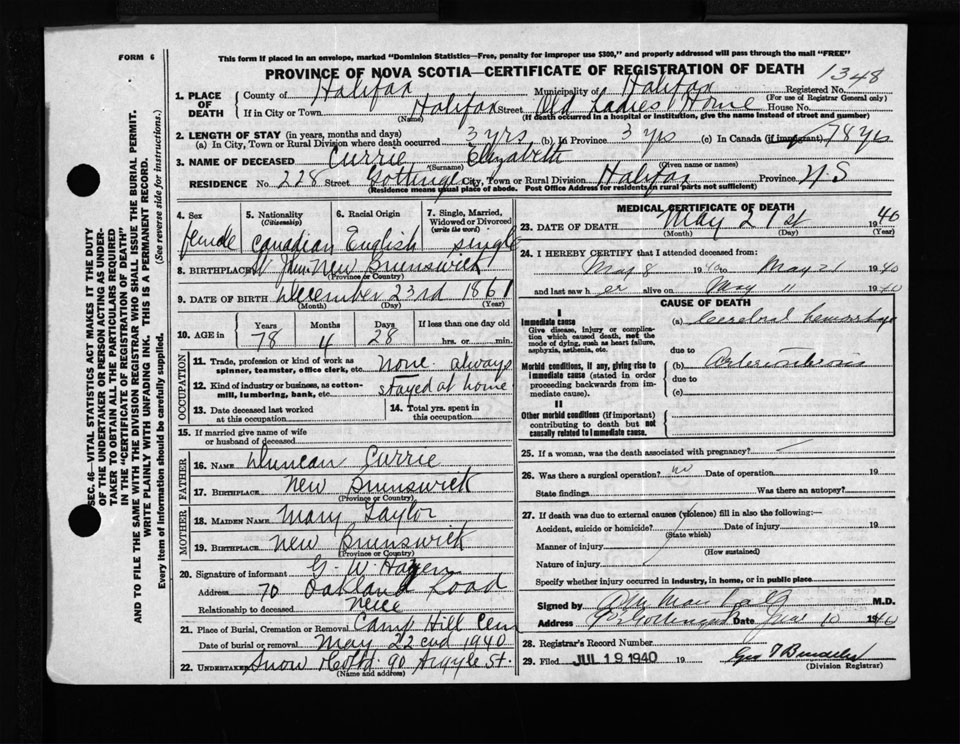 FORM 6
This form if placed in an envelope, marked "Dominion Statistics—Free, penalty for improper use $300," and properly addressed will pass through the mail "FREE"
PROVINCE OF NOVA SCOTIA—CERTIFICATE OF REGISTRATION OF DEATH
1348
1. PLACE OF DEATH
County of Halifax Municipality of Halifax Registered No.
(For use of Registrar General only)
If in City or Town Halifax Street Old Ladies Home House No.
(Name) (If death occurred in a hospital or institution, give the name instead of street and number)
2. LENGTH OF STAY (in years, months and days)
(a) In City, Town or Rural Division where death occurred 3 yrs (b) In Province 3 yrs (c) In Canada (if immigrant) 78 yrs
3. NAME OF DECEASED Currie Elizabeth
(Surname) (Given name or names)
RESIDENCE No. 228 Street Gottingen City, Town or Rural Division Halifax Province N.S
(Residence means usual place of abode. Post Office Address for residents in rural parts not sufficient)
4. Sex
female
5. Nationality
(Citizenship)
Canadian
6. Racial Origin
English
7. Single, Married, Widowed or Divorced
(write the word)
single
8. BIRTHPLACE New Brunswick
(Province or Country)
9. DATE OF BIRTH December 23rd 1861
(Month) (Day) (Year)
10. AGE in
Years Months Days If less than one day old
78 4 28 hrs. or min.
OCCUPATION
11. Trade, profession or kind of work as spinner, teamster, office clerk, etc. None always
12. Kind of industry or business, as cotton-mill, lumbering, bank, etc. stayed at home
13. Date deceased last worked at this occupation
14. Total yrs. spent in this occupation
15. If married give name of wife or husband of deceased
FATHER
16. NAME Duncan Currie
17. BIRTHPLACE New Brunswick
(Province or Country)
MOTHER
18. MAIDEN NAME Mary Taylor
19. BIRTHPLACE New Brunswick
(Province or Country)
20. Signature of informant G. W.
Address 70 Oakland Road
Relationship to deceased Neice
21. Place of Burial, Cremation or Removal Camp Hill Cem
Date of burial or removal May 22nd 1940
22. UNDERTAKER Snow & Co Ltd. 90 Argyle St.
(Name and address)
MEDICAL CERTIFICATE OF DEATH
23. DATE OF DEATH May 21st 1940
(Month) (Day) (Year)
24. I HEREBY CERTIFY that I attended deceased from:
May 8 1940 to May 21 1940
and last saw her alive on May 11 1940
CAUSE OF DEATH
I
Immediate cause
Give disease, injury or complication which caused death, not the mode of dying, such as heart failure, asphyxia, asthenia, etc.
(a) Cerebral hemorrhage
due to
Morbid conditions, if any, giving rise to immediate cause (stated in order proceeding backwards from immediate cause).
(b)
due to
(c)
II
Other morbid conditions (if important) contributing to death but not causally related to immediate cause.
25. If a woman, was the death associated with pregnancy?
26. Was there a surgical operation? no Date of operation 19
State findings Was there an autopsy?
27. If death was due to external causes (violence) fill in also the following:—
Accident, suicide or homicide? Date of injury 19
(State which)
Manner of injury
(How sustained)
Nature of injury
Specify whether injury occurred in industry, in home, or in public place
Signed by M.D.
Address Gottingen Date June 10 1940
28. Registrar's Record Number
29. Filed JUL 19 1940 19
(Division Registrar)
SEC. 46—VITAL STATISTICS ACT MAKES IT THE DUTY
OF THE UNDERTAKER OR PERSON ACTING AS UNDER-
TAKER TO OBTAIN ALL THE PARTICULARS REQUIRED
IN THE "CERTIFICATE OF REGISTRATION OF DEATH"
AND TO FILE THE SAME WITH THE DIVISION REGISTRAR WHO SHALL ISSUE THE BURIAL PERMIT.
WRITE PLAINLY WITH UNFADING INK. THIS IS A PERMANENT RECORD.
Every item of information should be carefully supplied. (See reverse side for instructions.)